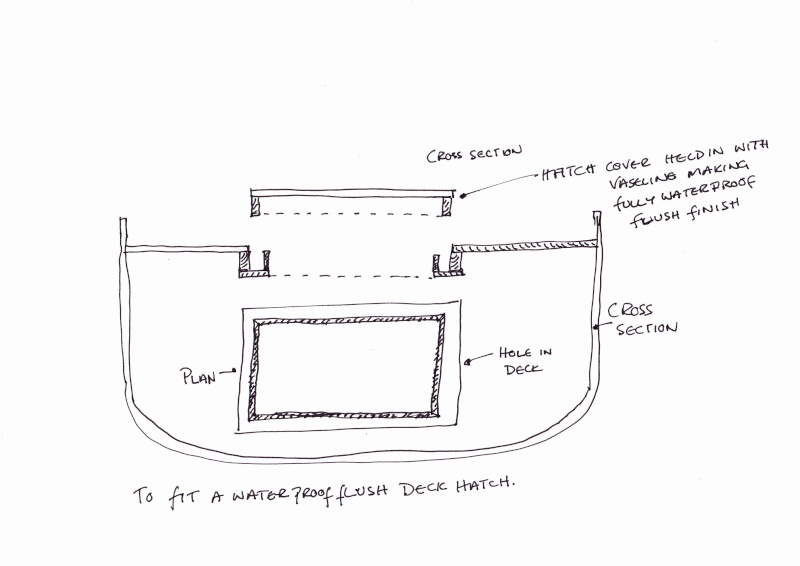 CROSS SECTION
HATCH COVER HELD IN WITH
VASELING MAKING
FULLY WATERPROOF
FLUSH FINISH
CROSS
SECTION
PLAN
HOLE IN
DECK
TO FIT A WATERPROOF FLUSH DECK HATCH.